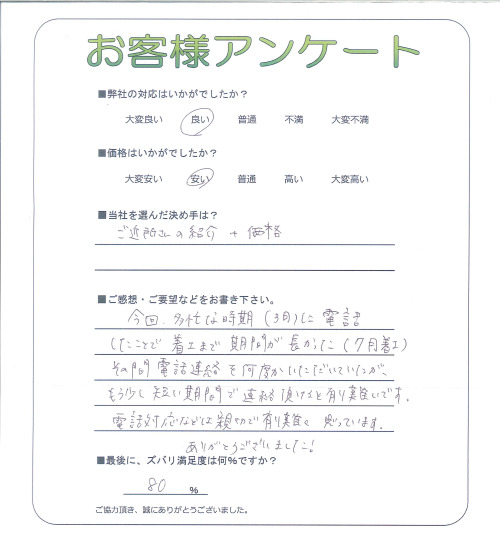 お客様アンケート
■弊社の対応はいかがでしたか？
大変良い 良い 普通 不満 大変不満
■価格はいかがでしたか？
大変安い 安い 普通 高い 大変高い
■当社を選んだ決め手は？
ご近所さんの紹介 + 価格
■ご感想・ご要望などをお書き下さい。
今回、多忙な時期(3月)に電話
したことで着工まで期間が長かった(7月着工)
その間電話連絡を何度かいただいていたが、
もう少し短い期間で連絡頂けると有り難いです。
電話対応などは親切で有り難く思っています。
ありがとうございました!
■最後に、ズバリ満足度は何%ですか？
80 %
ご協力頂き、誠にありがとうございました。